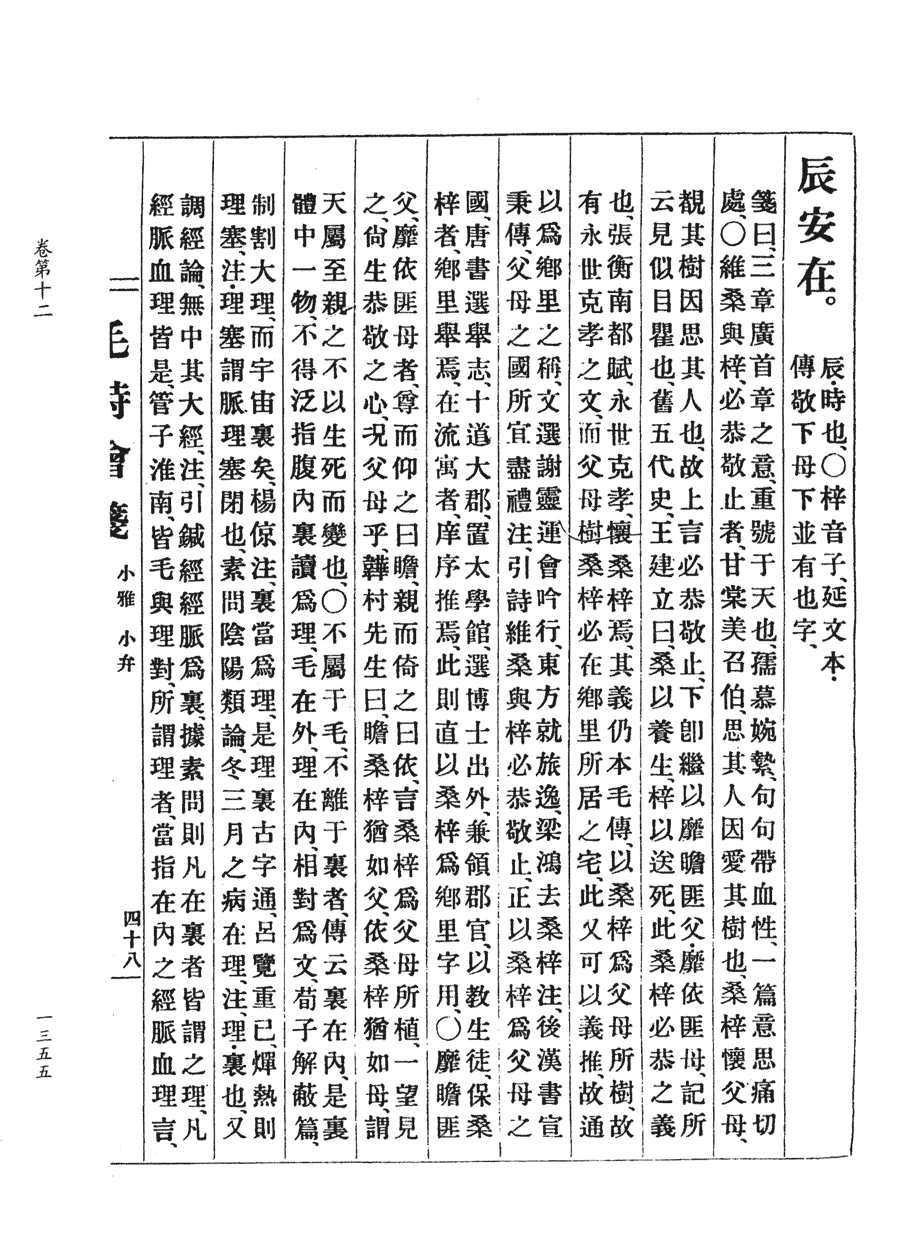 辰安在。
辰、時也、〇梓音子、延文本、
傳敬下母下並有也字、
箋曰、三章廣首章之意、重號于天也、孺慕婉摯、句句帶血性、一篇意思痛切
處、〇維桑與梓、必恭敬止者、甘棠美召伯、思其人因愛其樹也、桑梓懷父母、
覩其樹因思其人也、故上言必恭敬止、下卽繼以靡瞻匪父、靡依匪母、記所
云見似目瞿也、舊五代史、王建立曰、桑以養生、梓以送死、此桑梓必恭之義
也、張衡南都賦、永世克孝、懷桑梓焉、其義仍本毛傳、以桑梓爲父母所樹、故
有永世克孝之文、而父母樹桑梓必在鄉里所居之宅、此又可以義推、故通
以爲鄉里之稱、文選謝靈運會吟行、東方就旅逸、梁鴻去桑梓注、後漢書宣
秉傳、父母之國所宜盡禮注、引詩維桑與梓必恭敬止、正以桑梓爲父母之
國、唐書選舉志、十道大郡、置太學館、選博士出外、兼領郡官、以教生徒、保桑
梓者、鄉里舉焉、在流寓者、庠序推焉、此則直以桑梓爲鄉里字用、〇靡瞻匪
父、靡依匪母者、尊而仰之曰瞻、親而倚之曰依、言桑梓爲父母所植、一望見
之、尙生恭敬之心、況父母乎、韡村先生曰、瞻桑梓猶如父、依桑梓猶如母、謂
天屬至親、之不以生死而變也、〇不屬于毛、不離于裏者、傳云裏在內、是裏
體中一物、不得泛指腹內裏讀爲理、毛在外、理在內、相對爲文、荀子解蔽篇、
制割大理、而宇宙裏矣、楊倞注、裏當爲理、是理裏古字通、呂覽重己、燀熱則
理塞、注、理塞謂脈理塞閉也、素問陰陽類論、冬三月之病、在理、注、理、裏也、又
調經論、無中其大經、注、引鍼經經脈爲裏、據素問則凡在裏者皆謂之理、凡
經脈血理皆是、管子淮南、皆毛與理對、所謂理者、當指在內之經脈血理言、
毛詩會箋　小雅　小弁　四十八
卷第十二
一三五五